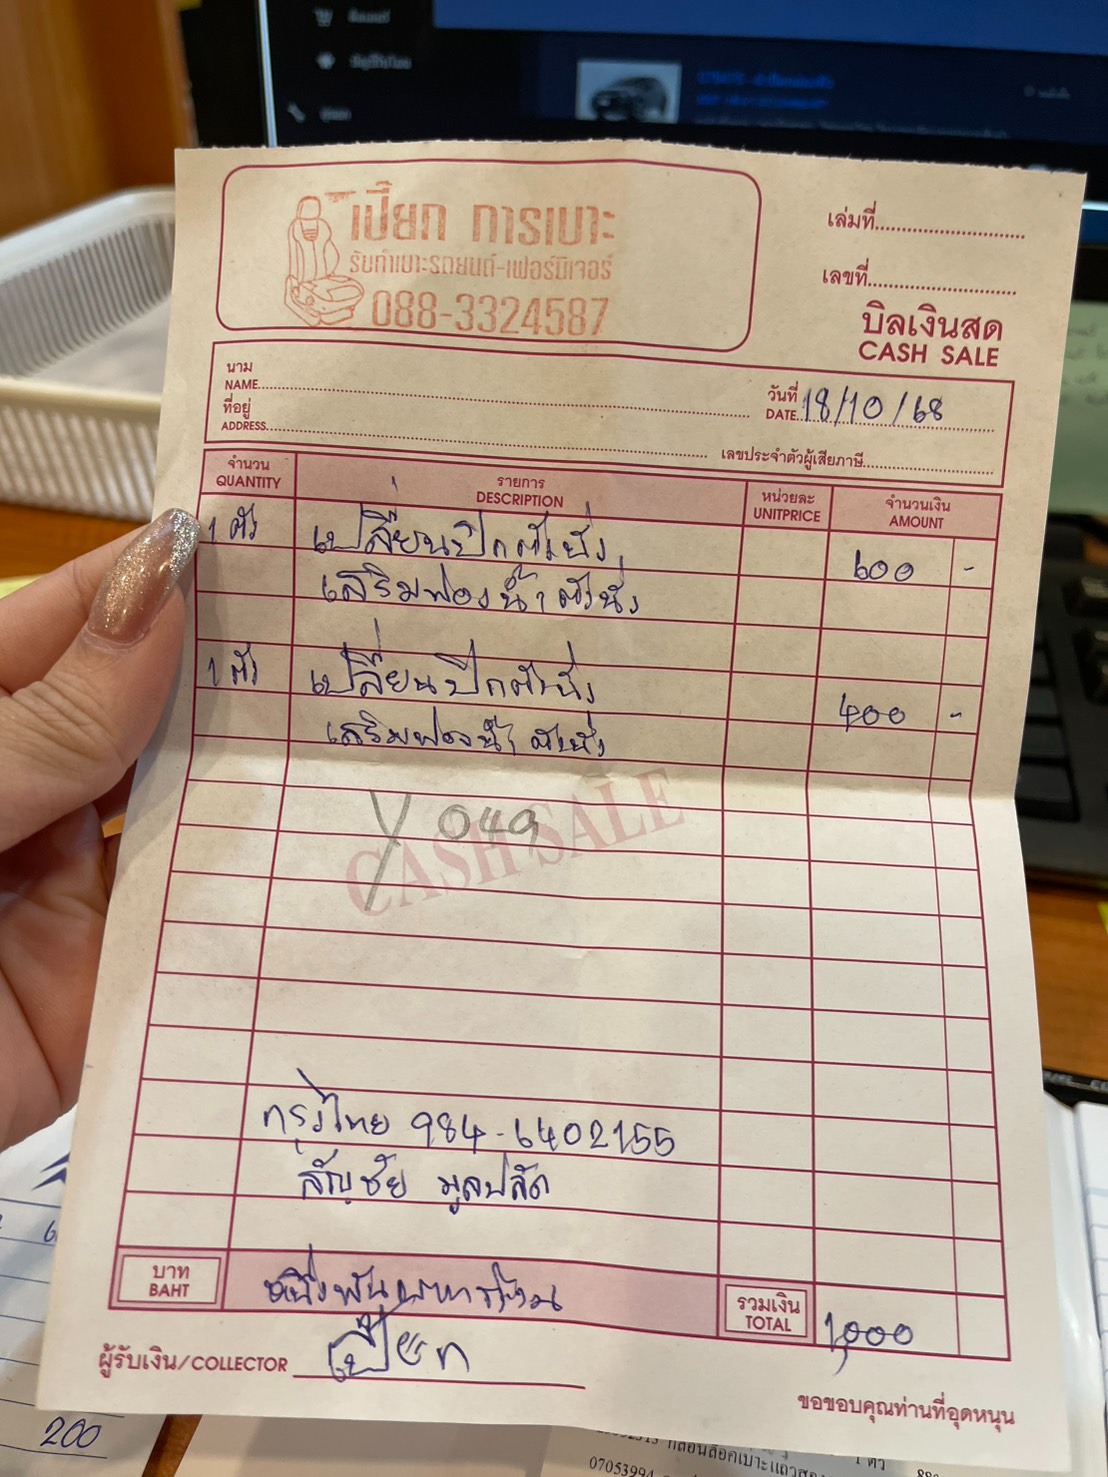 เปี๊ยก การเบาะ
รับทำเบาะรถยนต์-เฟอร์นิเจอร์
088-3324587
เล่มที่
เลขที่
บิลเงินสด
CASH SALE
นาม
NAME
วันที่
DATE 18/10/68
ที่อยู่
ADDRESS
เลขประจำตัวผู้เสียภาษี
จำนวน รายการ หน่วยละ จำนวนเงิน
QUANTITY DESCRIPTION UNITPRICE AMOUNT
1 ตัว เปลี่ยนปีกตัวนั่ง 600 -
เสริมฟองน้ำตัวนั่ง
1 ตัว เปลี่ยนปีกตัวนั่ง 400 -
เสริมฟองน้ำตัวนั่ง
CASH SALE
Y 049
กรุงไทย 984-6402155
สัญชัย มูลปลัด
บาท
BAHT
หนึ่งพันบาทถ้วน
รวมเงิน
TOTAL
1,000
ผู้รับเงิน/COLLECTOR เปี๊ยก
ขอขอบคุณท่านที่อุดหนุน
200